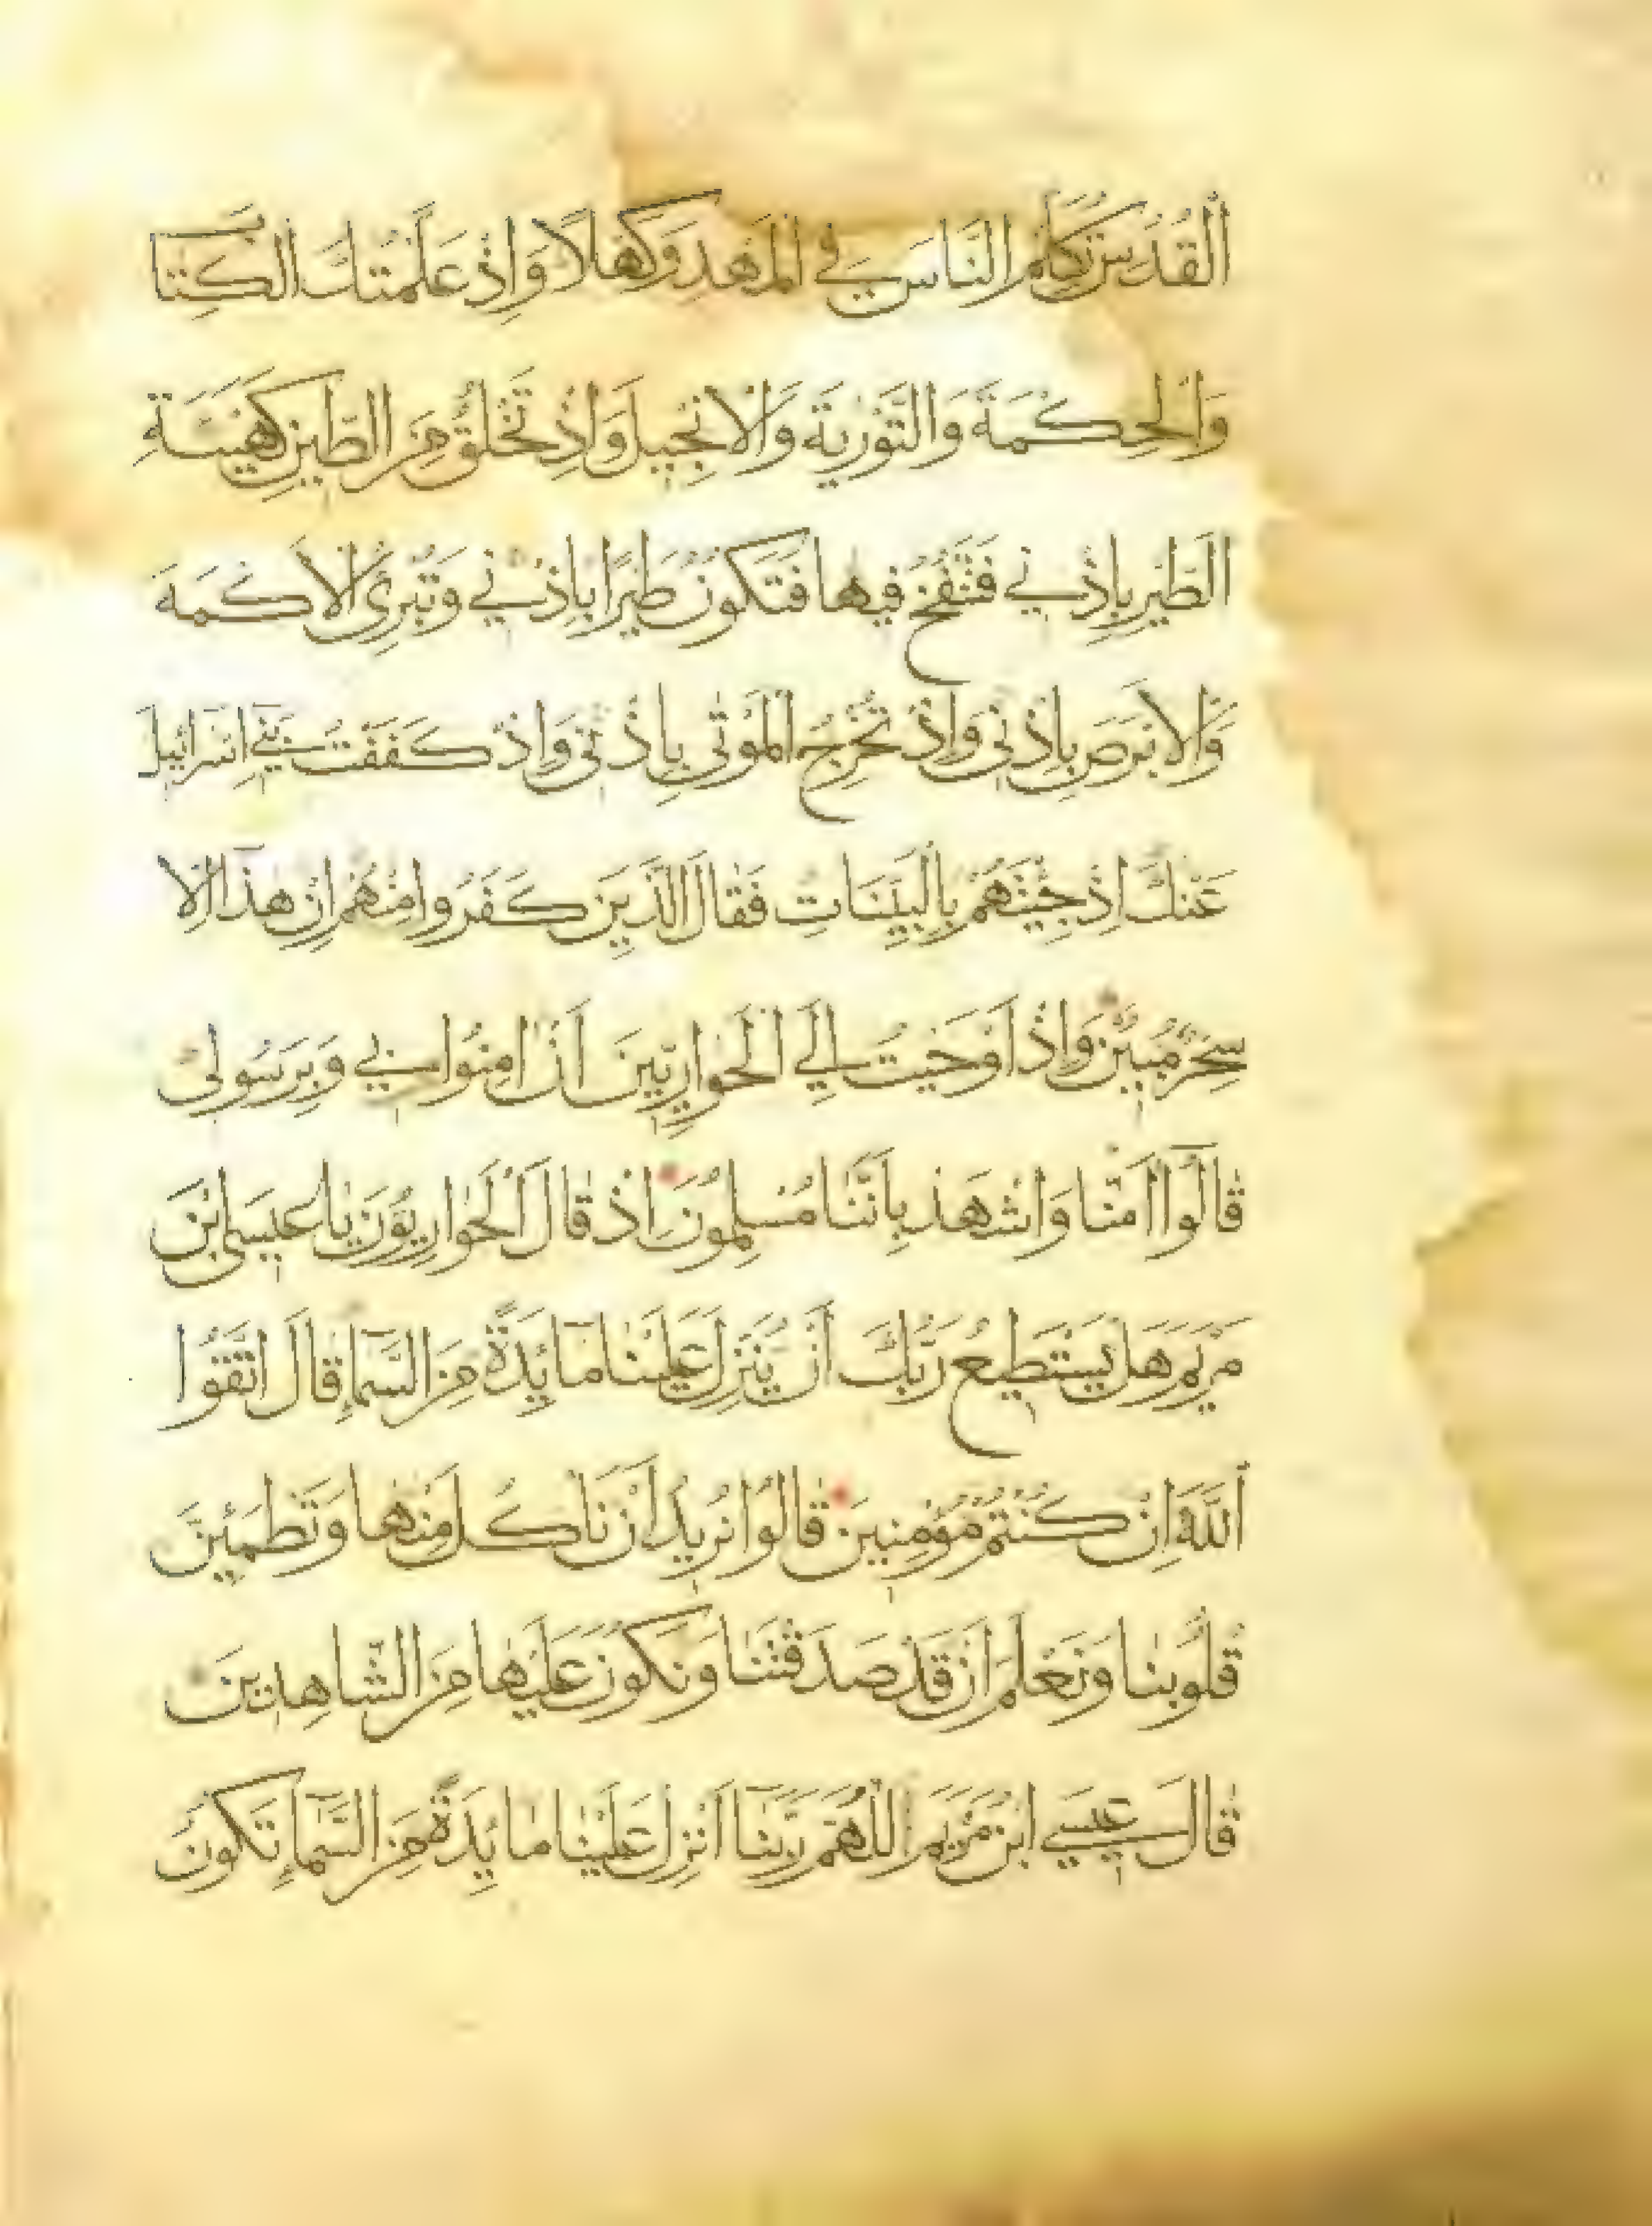 اَلْقُدُسِ تُكَلِّمُ النَّاسَ فِي الْمَهْدِ وَكَهْلًا وَاِذْ عَلَّمْتُكَ الْكِتَابَ
وَالْحِكْمَةَ وَالتَّوْرٰيةَ وَالْاِنْجِيلَ وَاِذْ تَخْلُقُ مِنَ الطِّينِ كَهَيْئَةِ
الطَّيْرِ بِاِذْنِي فَتَنْفُخُ فِيهَا فَتَكُونُ طَيْرًا بِاِذْنِي وَتُبْرِئُ الْاَكْمَهَ
وَالْاَبْرَصَ بِاِذْنِي وَاِذْ تُخْرِجُ الْمَوْتٰى بِاِذْنِي وَاِذْ كَفَفْتُ بَنِي اِسْرَائِيلَ
عَنْكَ اِذْ جِئْتَهُمْ بِالْبَيِّنَاتِ فَقَالَ الَّذِينَ كَفَرُوا مِنْهُمْ اِنْ هٰذَا اِلَّا
سِحْرٌ مُبِينٌ وَاِذْ اَوْحَيْتُ اِلَي الْحَوَارِيِّينَ اَنْ اٰمِنُوا بِي وَبِرَسُولِي
قَالُوا اٰمَنَّا وَاشْهَدْ بِاَنَّنَا مُسْلِمُونَ اِذْ قَالَ الْحَوَارِيُّونَ يَا عِيسَى ابْنَ
مَرْيَمَ هَلْ يَسْتَطِيعُ رَبُّكَ اَنْ يُنَزِّلَ عَلَيْنَا مَائِدَةً مِنَ السَّمَاءِ قَالَ اتَّقُوا
اللّٰهَ اِنْ كُنْتُمْ مُؤْمِنِينَ قَالُوا نُرِيدُ اَنْ نَاْكُلَ مِنْهَا وَتَطْمَئِنَّ
قُلُوبُنَا وَنَعْلَمَ اَنْ قَدْ صَدَقْتَنَا وَنَكُونَ عَلَيْهَا مِنَ الشَّاهِدِينَ
قَالَ عِيسَي ابْنُ مَرْيَمَ اللّٰهُمَّ رَبَّنَا اَنْزِلْ عَلَيْنَا مَائِدَةً مِنَ السَّمَاءِ تَكُونُ